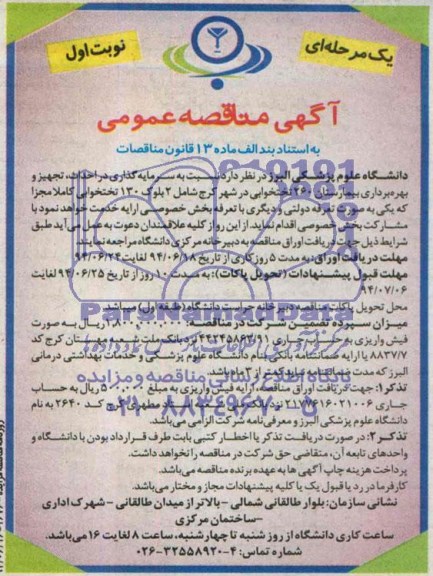 یک مرحله‌ای
نوبت اول
آگهی مناقصه عمومی
به استناد بند الف ماده ۱۳ قانون مناقصات
دانشگاه علوم پزشکی البرز در نظر دارد نسبت به سرمایه گذاری در احداث، تجهیز و
بهره‌برداری بیمارستان ۲۶۰ تختخوابی در شهر کرج شامل ۲ بلوک ۱۳۰ تختخوابی کاملا مجزا
که یکی به صورت تعرفه دولتی و دیگری با تعرفه بخش خصوصی ارایه خدمت خواهد نمود با
مشارکت بخش خصوصی اقدام نماید. از این رو از کلیه علاقمندان دعوت به عمل می‌آید طبق
شرایط ذیل جهت دریافت اوراق مناقصه به دبیرخانه مرکزی دانشگاه مراجعه نمایند.
مهلت دریافت اوراق: به مدت ۵ روز کاری از تاریخ ۹۴/۰۶/۱۸ لغایت ۹۴/۰۶/۲۴
مهلت قبول پیشنهادات (تحویل پاکات): به مدت ۱۰ روز از تاریخ ۹۴/۰۶/۲۵ لغایت
۹۴/۰۷/۰۶
محل تحویل پاکات مناقصه دبیرخانه حراست دانشگاه (طبقه اول) میباشد.
میزان سپرده تضمین شرکت در مناقصه: ریال به صورت
فیش واریزی به حساب جاری نزد بانک ملت شعبه مهستان کرج کد
۸۸۳۷/۷ یا ارایه ضمانتنامه بانکی بنام دانشگاه علوم پزشکی و خدمات بهداشتی درمانی
البرز که مدت ضمانتنامه نباید کمتر از ۳ ماه باشد.
تذکر۱: جهت دریافت اوراق مناقصه، ارایه فیش واریزی به مبلغ ریال به حساب
جاری ۲۱۷۷۶۱۶۰۲۱۰۰۶ نزد بانک ملی مطهری کرج کد ۲۶۴۰ به نام
دانشگاه علوم پزشکی البرز و معرفی‌نامه شرکت الزامی می‌باشد.
تذکر۲: در صورت دریافت تذکر یا اخطار کتبی بابت طرف قرارداد بودن با دانشگاه و
واحدهای تابعه آن، متقاضی حق شرکت در مناقصه را نخواهد داشت.
پرداخت هزینه چاپ آگهی ها به عهده برنده مناقصه می‌باشد.
کارفرما در رد یا قبول یک یا کلیه پیشنهادات مجاز و مختار می‌باشد.
نشانی سازمان: بلوار طالقانی شمالی - بالاتر از میدان طالقانی - شهرک اداری
-ساختمان مرکزی
ساعت کاری دانشگاه از روز شنبه تا چهارشنبه، ساعت ۸ لغایت ۱۶ می‌باشد.
شماره تماس: ۴-۳۲۵۵۸۹۲۰-۰۲۶
ParsNamadData
پایگاه اطلاع رسانی مناقصه و مزایده
۰۲۱-۸۸۳۴۹۶۷۰